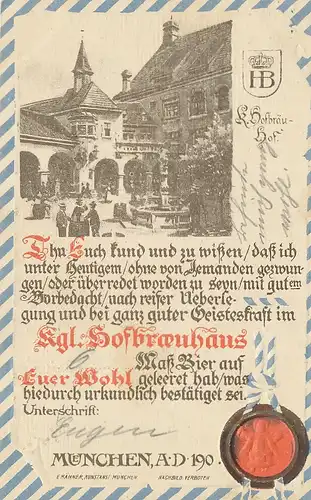 HB
K. Hofbräu-
Hof.
Thu Euch kund und zu wißen/daß ich
unter Heutigem/ohne von Jemanden gezwun-
gen/oder überredet worden zu seyn/mit gutem
Vorbedacht/nach reifer Ueberle-
gung und bei ganz guter Geisteskraft im
Kgl. Hofbræuhaus
6 Maß Bier auf
Euer Wohl geleeret hab/was
hiedurch urkundlich bestätiget sei.
Unterschrift:
Eugen
MUENCHEN, A.D 190
NACHBILD. VERBOTEN